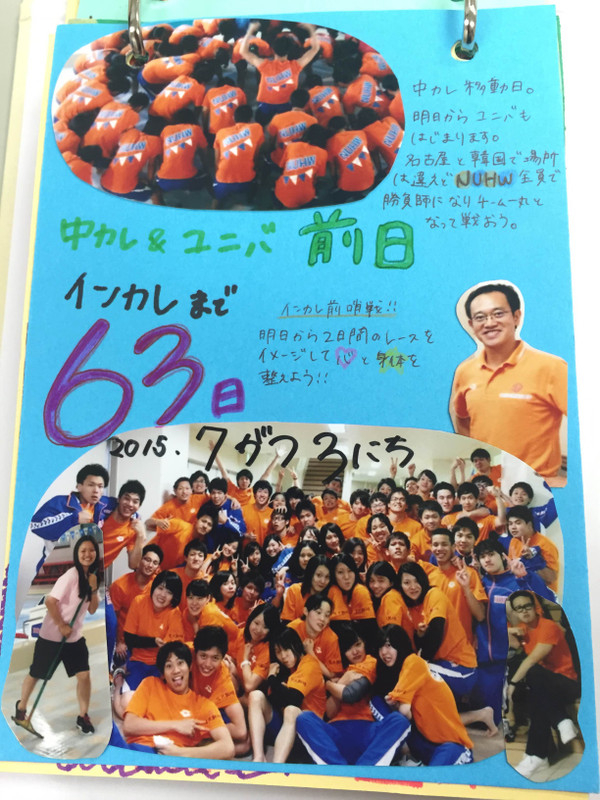 中カレ移動日。
明日からユニバも
はじまります。
名古屋と韓国で場所
は違えどNUHW全員で
勝負師になりチーム一丸と
なって戦おう。
中カレ&ユニバ 前日
インカレまで
63日
インカレ前哨戦!!
明日から2日間のレースを
イメージして心と身体を
整えよう!!
2015. 7がつ3にち
NUHW
NUHW
NUHW
NUHW
NUHW